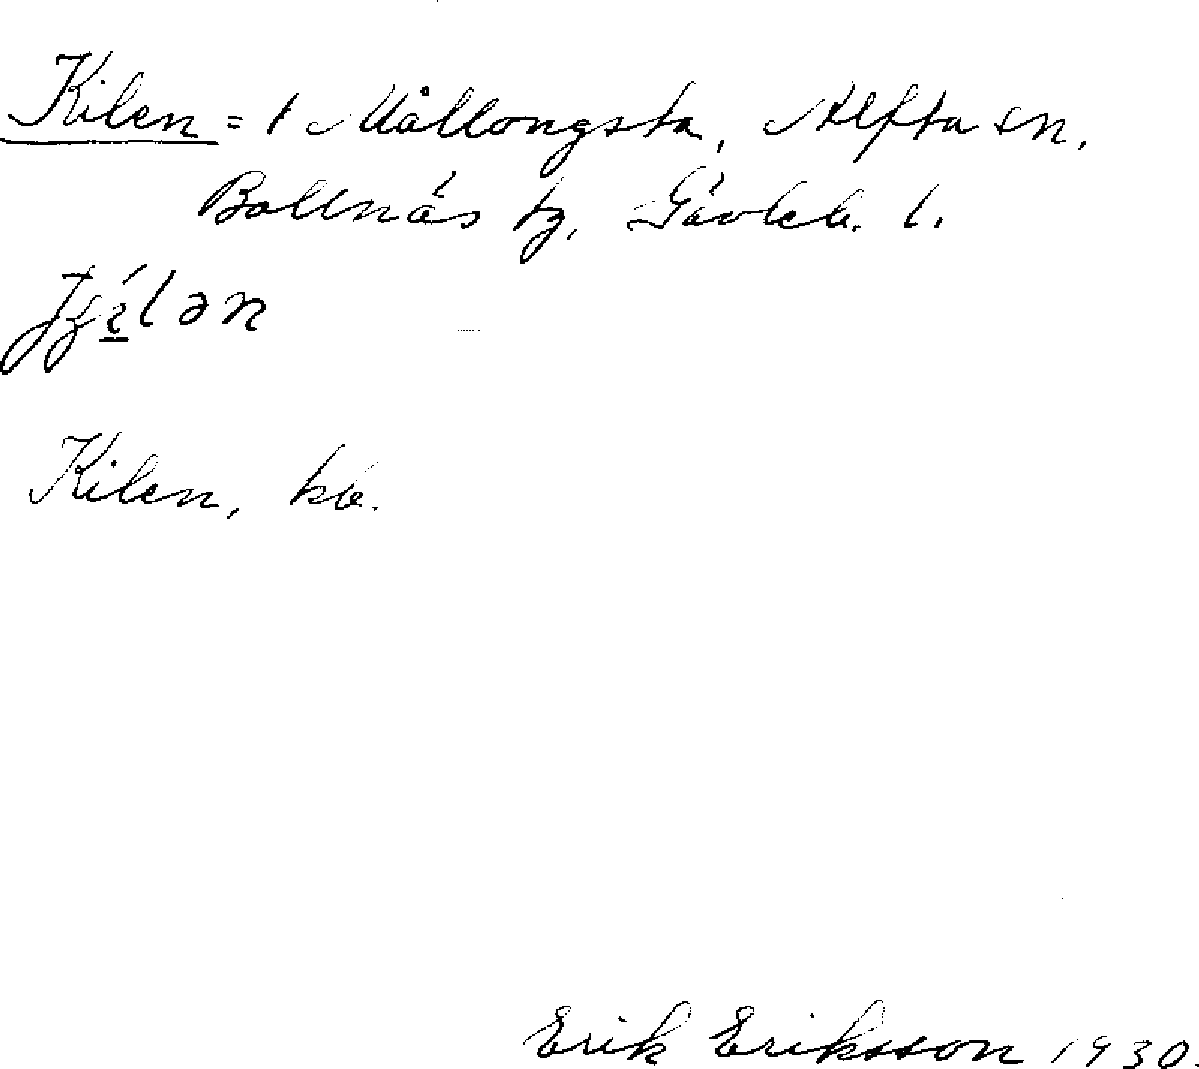 Kilen = t Mållongsta, Alfta sn,
Bollnäs tg, Gävleb. l.
Kilen, kb.
Erik Eriksson 1930.